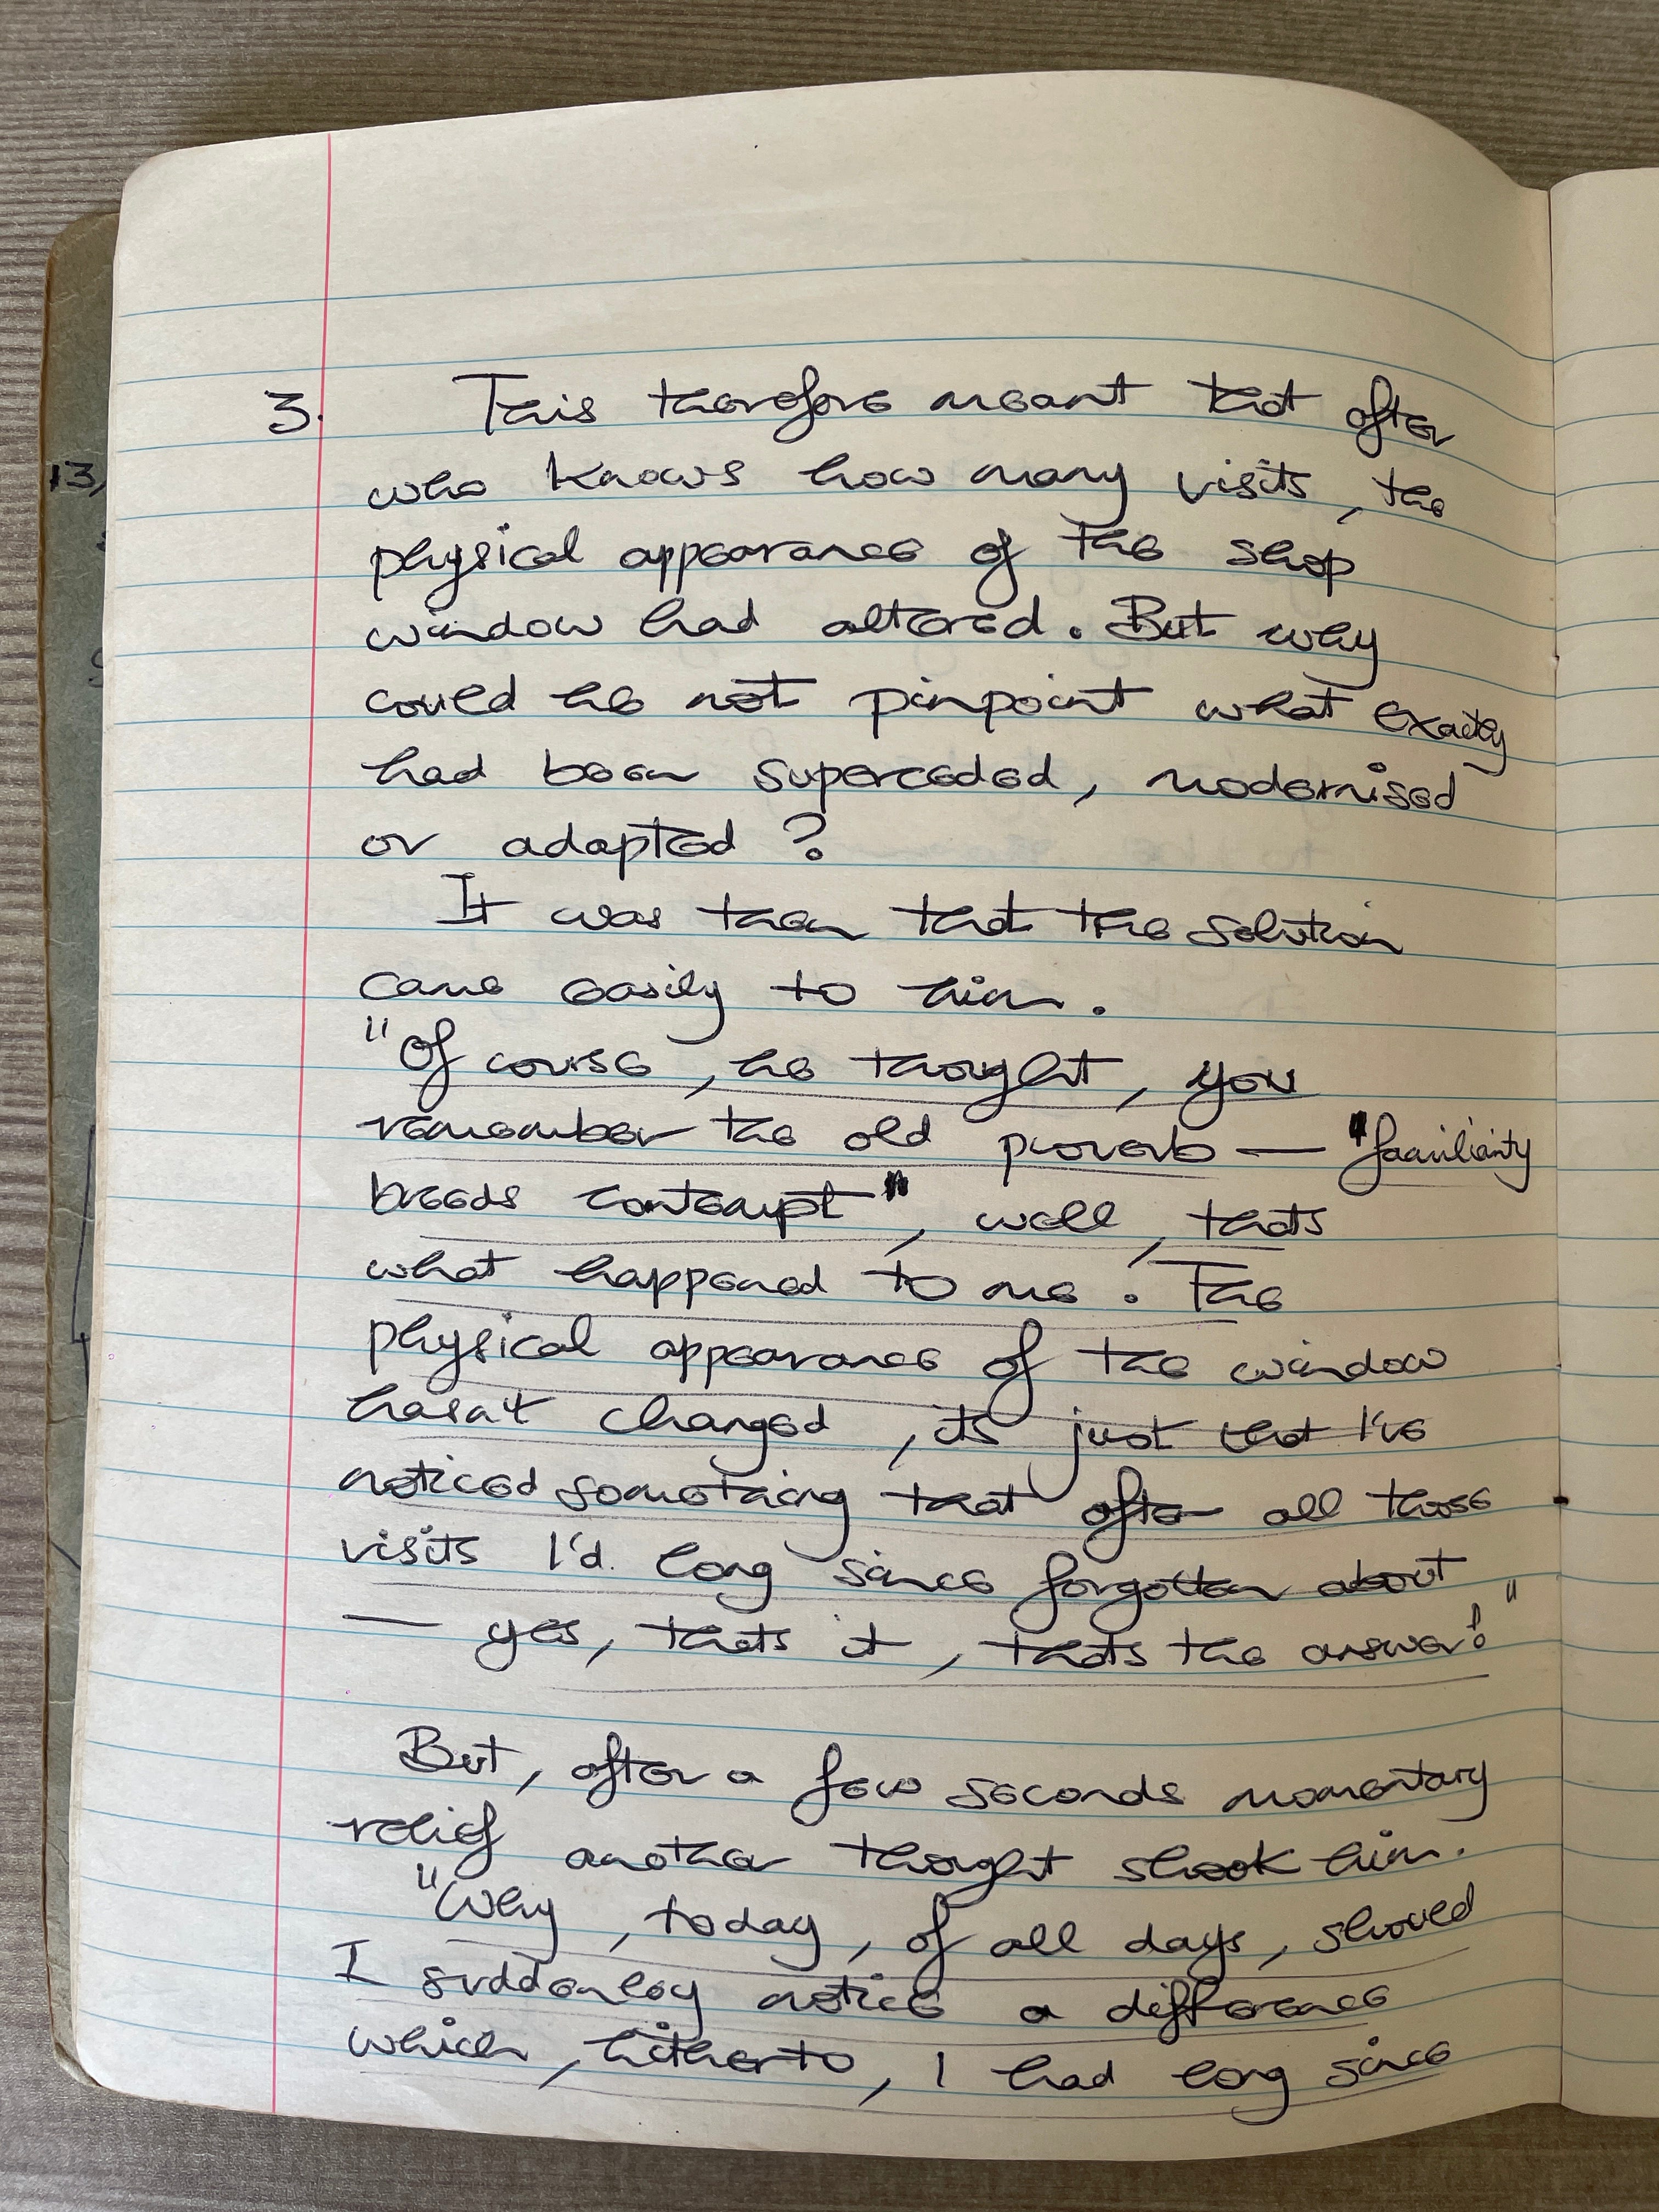 3. This therefore meant that after
who knows how many visits, the
physical appearance of the shop
window had altered. But why
could he not pinpoint what exactly
had been superceded, modernised
or adapted?
It was then that the solution
came easily to him.
"Of course, he thought, you
remember the old proverb — "familiarity
breeds contempt", well, thats
what happened to me. The
physical appearance of the window
hasn't changed, its just that I've
noticed something that after all those
visits I'd long since forgotten about
— yes, thats it, thats the answer!"
But, after a few seconds momentary
relief another thought shook him.
"Why, today, of all days, should
I suddenly notice a difference
which, hitherto, I had long since
13,